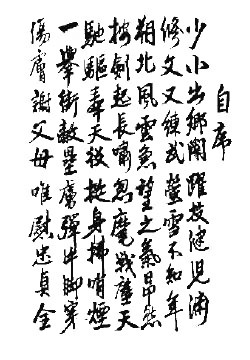 自序
少小出鄉關躍鼓健兒滿
修文又練武螢雪不知年
朔北風雲急望之氣昂然
按劍起長嘯忽麾戰塵天
馳驅奉天役挺身拂硝煙
一擧衝敵壘虜彈中脚穿
傷膚謝父母唯慰忠貞全